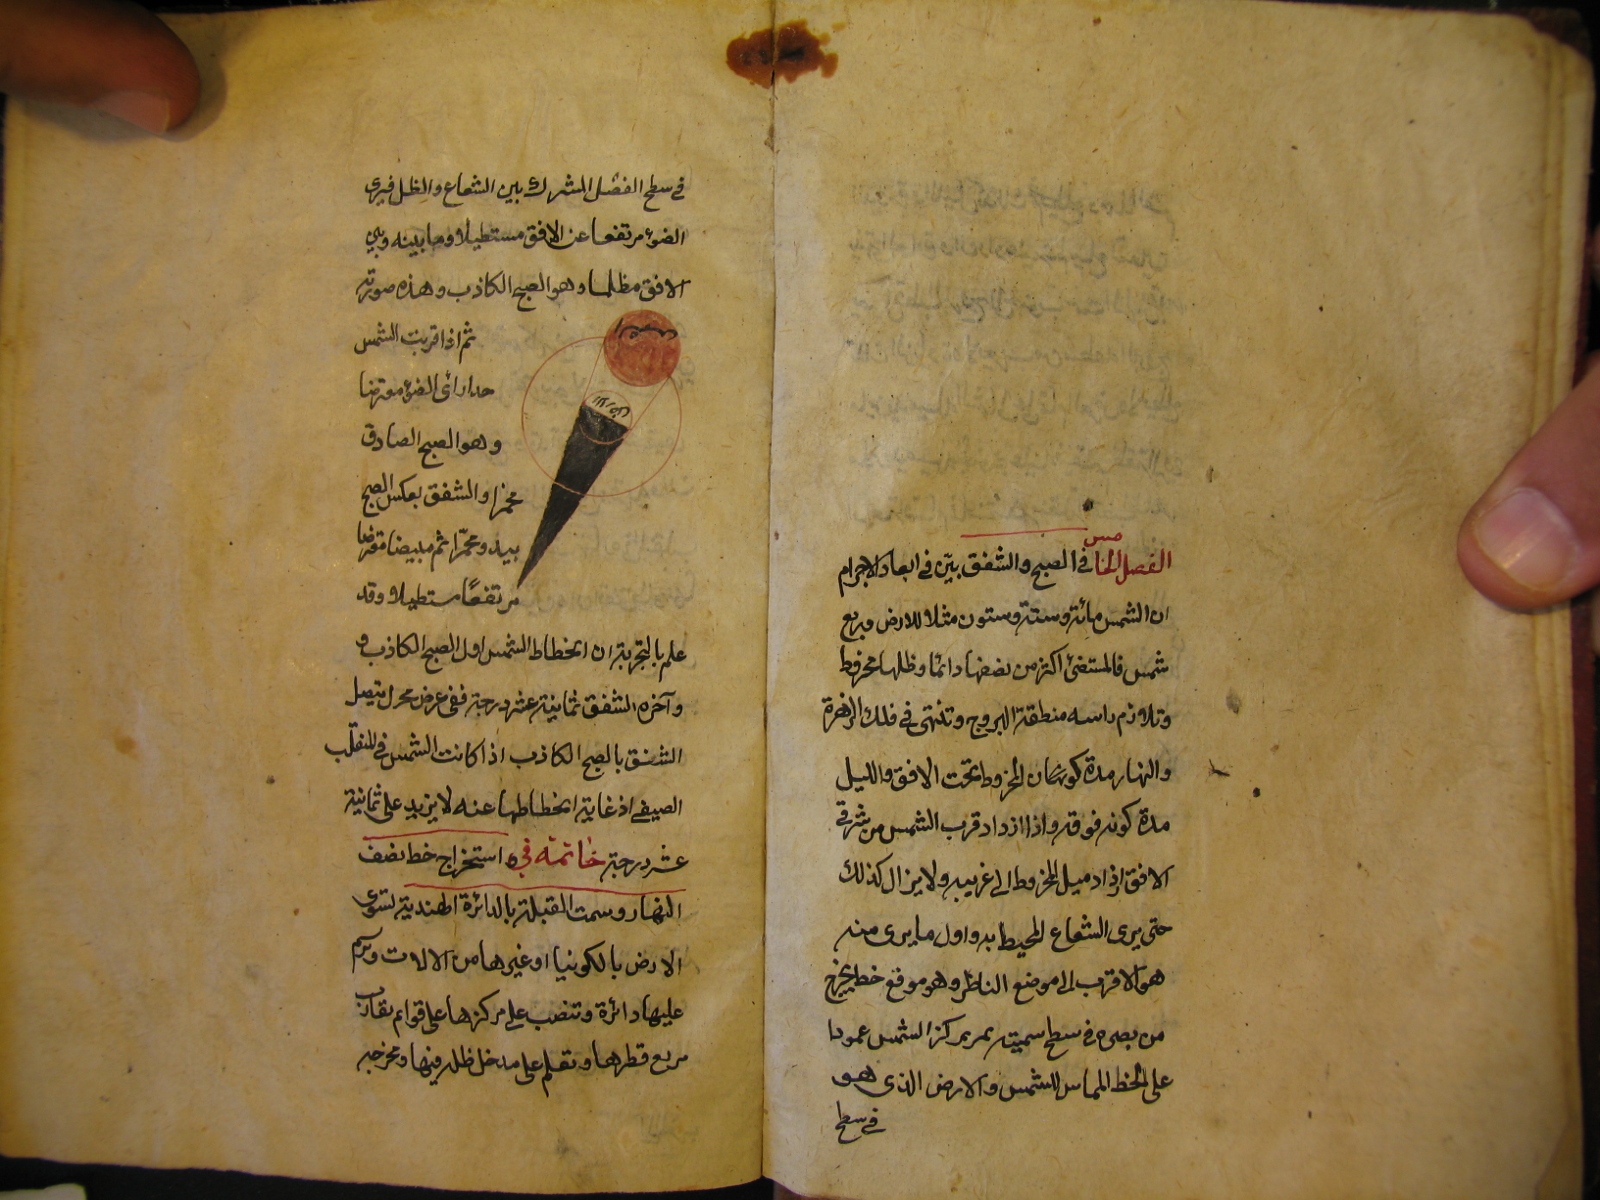 الفصل الخامس في الصبح والشفق بيّن في ابعاد الاجرام
ان الشمس مائة وستة وستون مثلا للارض وربع
شمس فالمستضئ اكثر من نصفها دائما وظلها مخروط
وتلازم راسه منطقة البروج وتنتهى في فلك الزهرة
والنهار مدة كون المخروط تحت الافق والليل
مدة كونه فوقه واذا ازداد قرب الشمس من شرقي
الافق ازداد ميل المخروط الى غربيه ولا يزال كذلك
حتى يرى الشعاع المحيط به واول ما يرى منه
هو الاقرب الى موضع الناظر وهو موقع خط يخرج
من بصره في سطح سميته يمر بمركز الشمس عمودا
على الخط المماس للشمس والارض الذى هو
في سطح
في سطح الفصل المشترك بين الشعاع والظل فيرى
الضوء مرتفعا عن الافق مستطيلا وما بينه وبين
الافق مظلما وهو الصبح الكاذب وهذه صورته
الشمس
الارض
ثم اذا قربت الشمس
جدا رائى الضوء معترضا
وهو الصبح الصادق
محمرا والشفق بعكس الصبح
يبدو محمّرا ثم مبيضا معترضا
مرتفعًا مستطيلا وقد
علم بالتجربة ان انحطاط الشمس اول الصبح الكاذب و
وآخره الشفق ثمانية عشر درجة ففى عرض يتصل
الشفق بالصبح الكاذب اذا كانت الشمس في المنقلب
الصيفى اذ غاية انحطاطها عنه لا يزيد على ثمانية
عشر درجة خاتمة في استخراج خط نصف
النهار وسمت القبلة بالدائرة الهندية تسوى
الارض بالكونيا او غيرها من الالات وترسم
عليها دائرة وتنصب على مركزها على قوائم يقارب
مربع قطرها وتعلم على مدخل ظله فيها ومخرجه